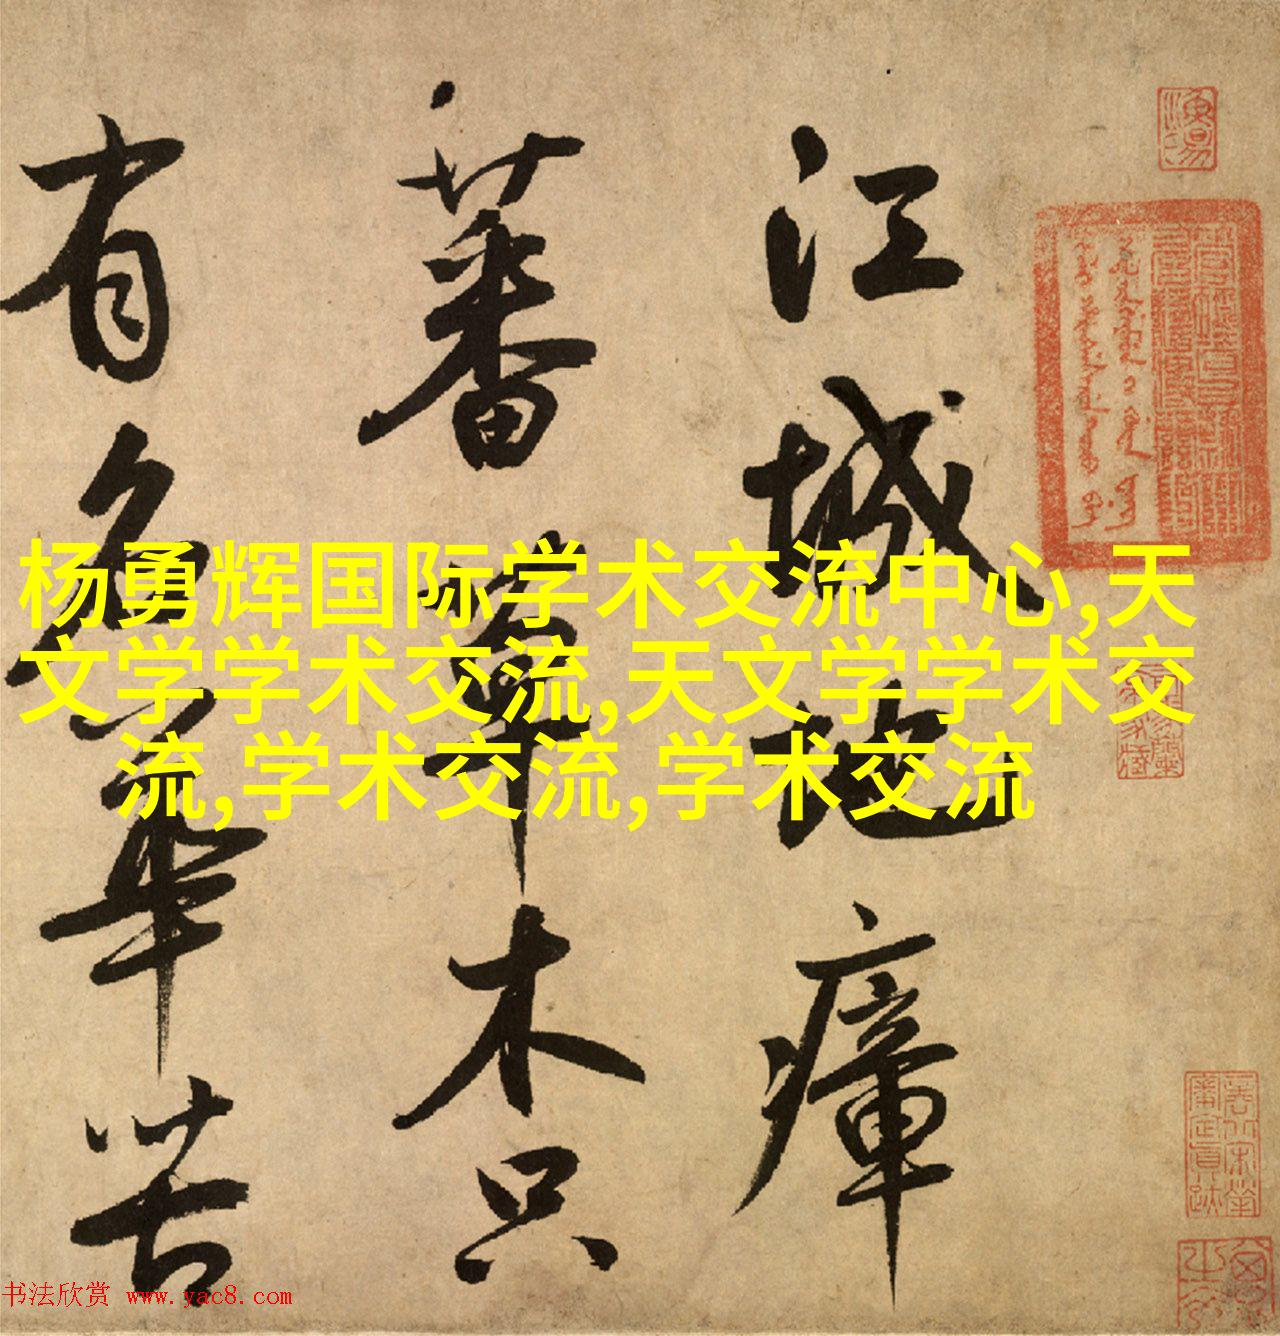 江城地瘴
蕃草木只
有名華苦
杨勇辉国际学术交流中心,天
文学学术交流,天文学学术交
流,学术交流,学术交流
书法欣赏 www.yac8.com